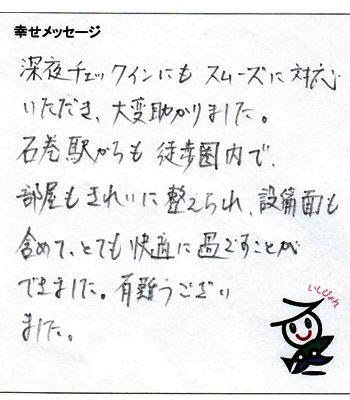 幸せメッセージ
深夜チェックインにも スムーズに対応
いただき、大変助かりました。
石巻駅からも 徒歩圏内で、
部屋もきれいに整えられ、設備面も
含めて、とても快適に過ごすことが
できました。有難うござい
ました。
いしぴょん